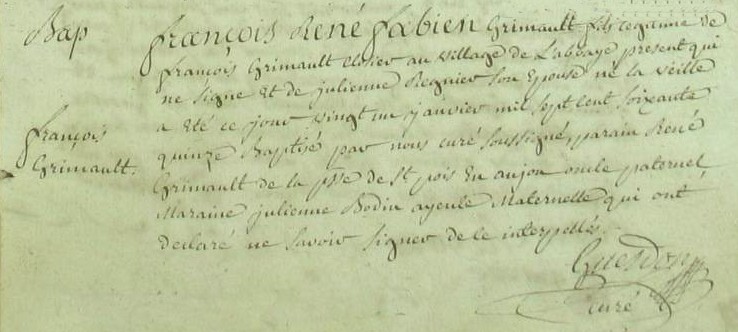 Bap
françois René fabien Grimault fils legitime de
françois Grimault closier au village de L'abbaye present qui
ne signe Et de julienne Regnier son Epouse né la veille
a Eté ce jour vingt un janvier mil sept cent soixante
quinze Baptisé par nous curé soussigné, parain René
Grimault de la psse de St pois En anjou oncle paternel
Maraine julienne Bodin ayeule Maternelle qui ont
declaré ne savoir signer de ce interpellés.
françois
Grimault.
Guesdon
curé